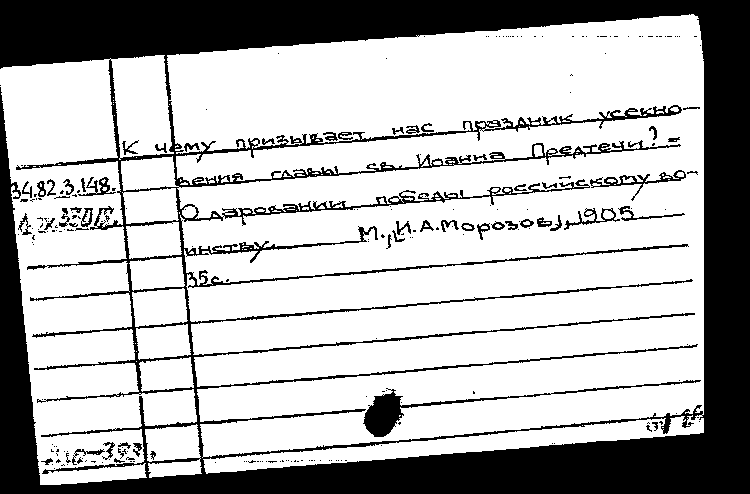 К чему призывает нас праздник усекно-
34.82.3.148. вения главы св. Иоанна Предтечи? =
О даровании победы российскому во-
инству. М., [И.А.Морозов], 1905
35с.